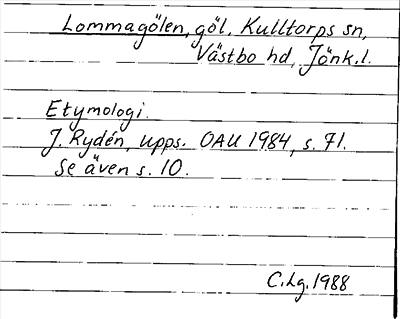 Lommagölen, göl, Kulltorps sn,
Västbo hd, Jönk.l.
Etymologi.
J. Rydén, upps. OAU 1984, s. 71.
Se även s. 10.
C.Lg. 1988